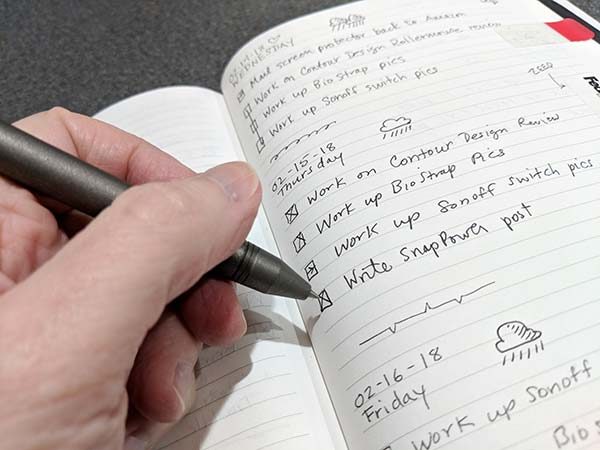 02-14-18
WEDNESDAY
Mail screen protector back to Amazon
Work on Contour Design Rollermouse review
Work up BioStrap pics
Work up Sonoff switch pics
02-15-18
Thursday
Work on Contour Design Review
Work up BioStrap Pics
Work up Sonoff switch pics
Write SnapPower post
02-16-18
Friday
Work up Sonoff
Bio S